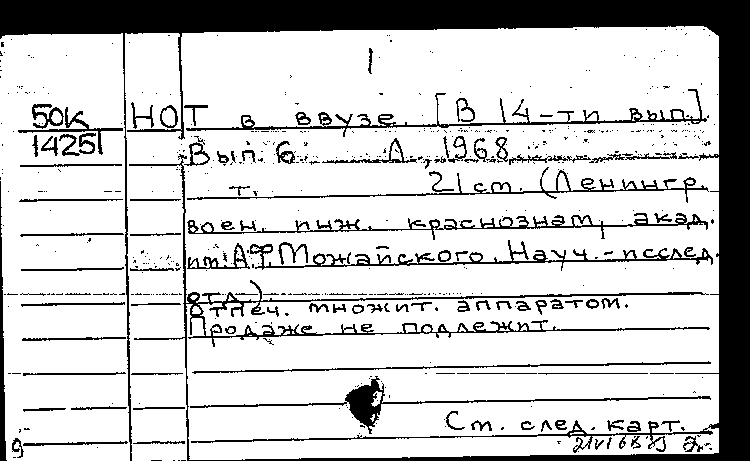 1
50К НОТ в ввузе. [В 14-ти вып.]
14251 Вып. 6 Л., 1968.
т. 21 cm. (Ленингр.
воен. инж. краснознам, акад.
им. А.Ф. Можайского. Науч.-исслед.
отд.).
Отпеч. множит. аппаратом.
Продаже не подлежит.
См. след. карт.
9